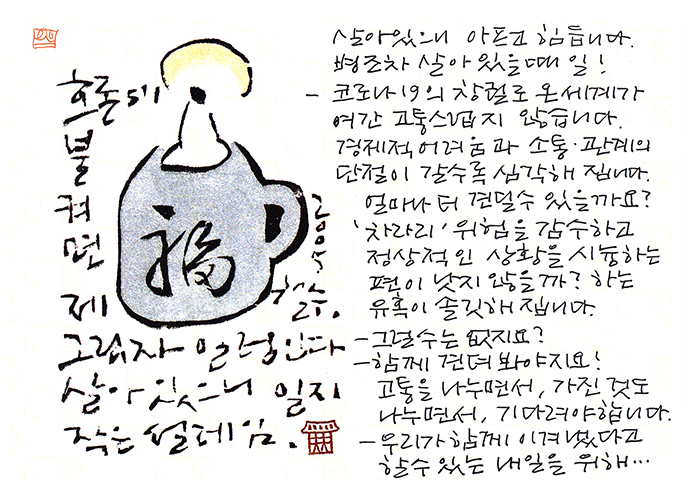 불
켜
면
제
그림자 일렁인다
살아있으니 일지
작은 설레임.
2005
철수.
福
살아있으니 아프고 힘듭니다.
병조차 살아있을때 일!
- 코로나19의 창궐로 온세계가
여간 고통스럽지 않습니다.
경제적어려움과 소통·관계의
단절이 갈수록 심각해 집니다.
얼마나 더 견딜수 있을까요?
'차라리' 위험을 감수하고
정상적인 상황을 시늉하는
편이 낫지 않을까? 하는
유혹이 솔깃해 집니다.
- 그럴수는 없지요?
- 함께 견뎌 봐야지요!
고통을 나누면서, 가진 것도
나누면서, 기다려야합니다.
- 우리가 함께 이겨냈다고
할수 있는 내일을 위해…